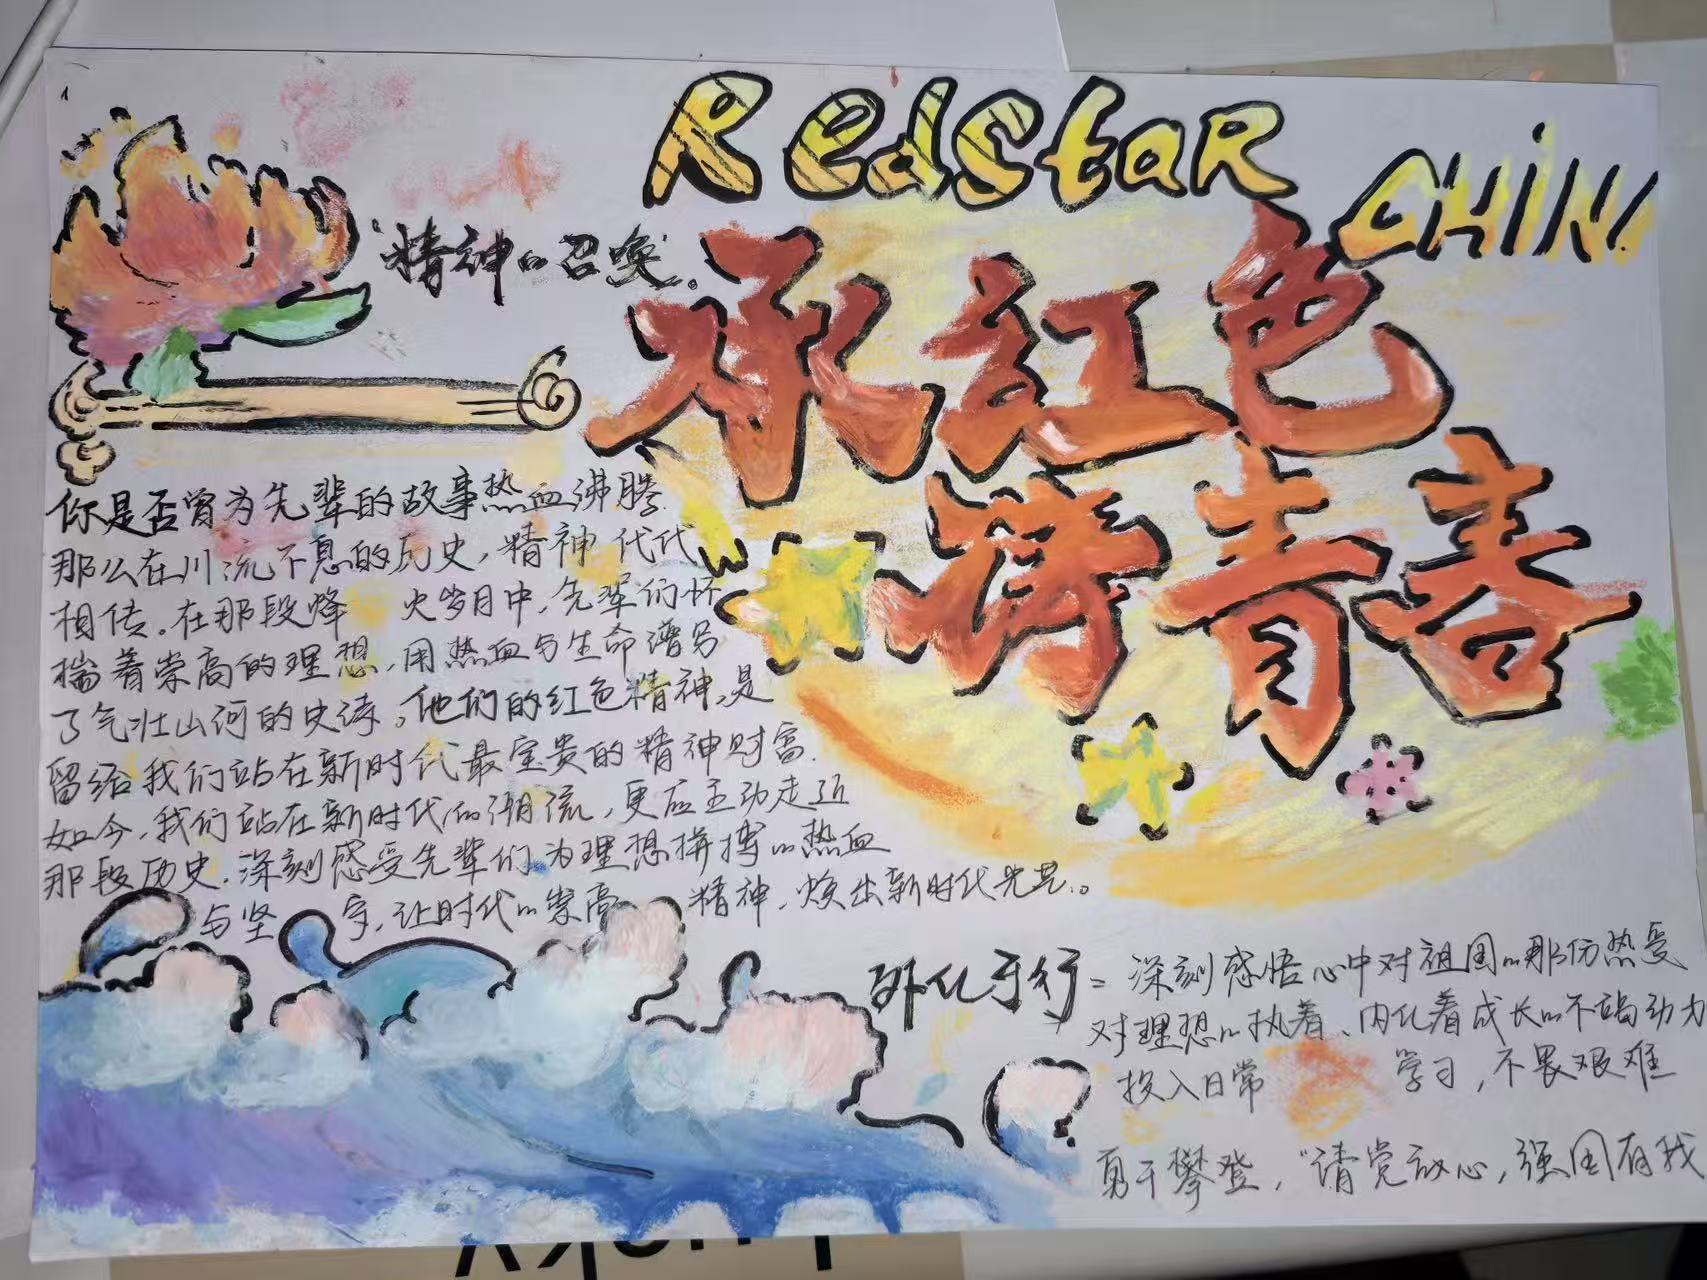 RedStaR
CHIN
承红色
铸青春
"精神的召唤".
你是否曾为先辈的故事热血沸腾.
那么在川流不息的历史,精神代代
相传。在那段烽 火岁月中,先辈们怀
揣着崇高的理想,用热血与生命谱写
了气壮山河的史诗。他们的红色精神,是
留给我们站在新时代最宝贵的精神财富.
如今,我们站在新时代的潮流,更应主动走近
那段历史.深刻感受先辈们为理想拼搏的热血
与坚 守,让时代的崇高 精神,焕出新时代光芒。
外化于行= 深刻感悟心中对祖国的那份热爱
对理想的执着、内化着成长的不竭动力
投入日常 学习,不畏艰难
勇于攀登,"请党放心,强国有我